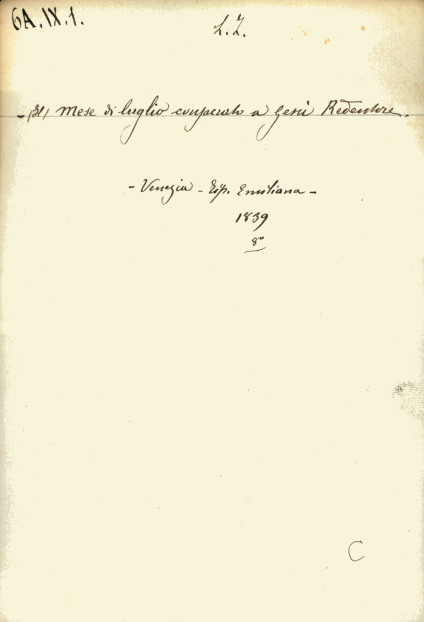 6A.IX.1.
L.Z.
- (Il) Mese di luglio consacrato a Gesù Redentore.
- Venezia - Tip. Emiliana -
1839
8°
C